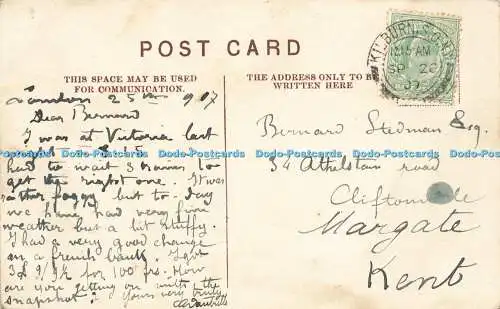 POST CARD
THIS SPACE MAY BE USED
FOR COMMUNICATION.
THE ADDRESS ONLY TO BE
WRITTEN HERE
KILBURN S.O.
12.15 AM
SP 26
07
London 25th 9 07
Dear Bernard
I was at Victoria last
night 8.15
had to wait 3 hours to
get the right one. It was
rather foggy but to day
we have had very fine
weather but a bit stuffy.
I had a very good change
in a french bank. I got
3£ 9/ for 100 frs. How
are you getting on with the
snapshot? Yours very truly
Bernard Stedman Esq.
34 Athelstan road
Cliftonville
Margate
Kent
Dodo-Postcards Dodo-Postcards Dodo-Postcards Dodo-Postcards Dodo-Postcards Dodo-Postcards